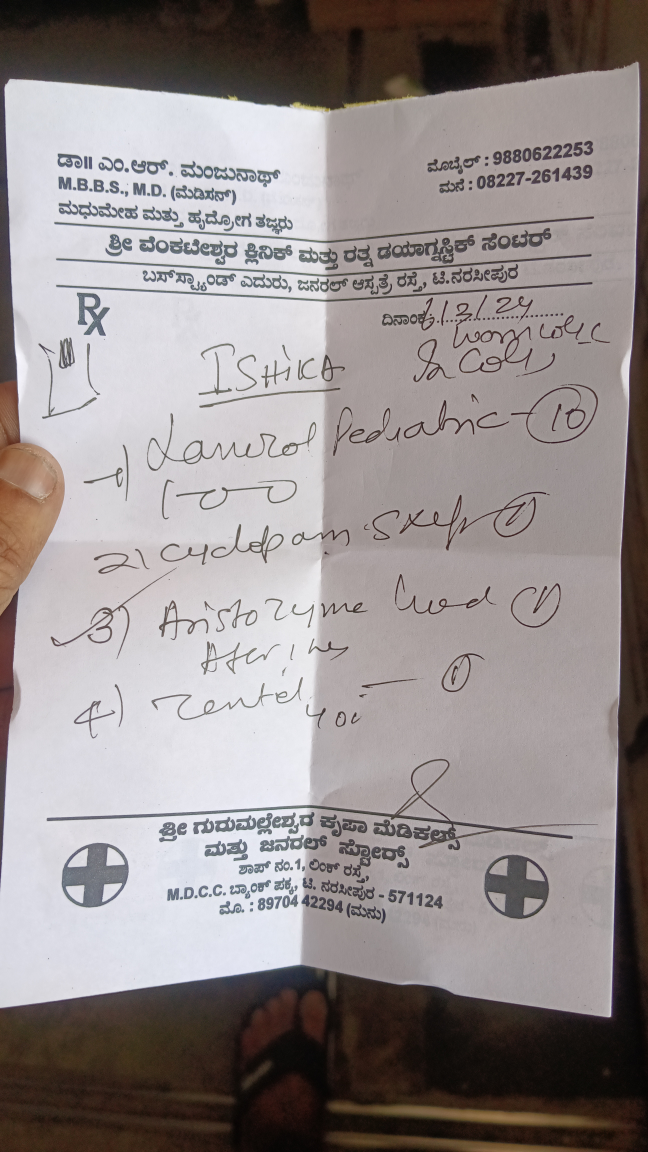 ಡಾ॥ ಎಂ.ಆರ್. ಮಂಜುನಾಥ್
M.B.B.S., M.D. (ಮೆಡಿಸನ್)
ಮಧುಮೇಹ ಮತ್ತು ಹೃದ್ರೋಗ ತಜ್ಞರು
ಮೊಬೈಲ್ : 9880622253
ಮನೆ : 08227-261439
ಶ್ರೀ ವೆಂಕಟೇಶ್ವರ ಕ್ಲಿನಿಕ್ ಮತ್ತು ರತ್ನ ಡಯಾಗ್ನಸ್ಟಿಕ್ ಸೆಂಟರ್
ಬಸ್‌ಸ್ಟ್ಯಾಂಡ್ ಎದುರು, ಜನರಲ್ ಆಸ್ಪತ್ರೆ ರಸ್ತೆ, ಟಿ.ನರಸೀಪುರ
Rx
ದಿನಾಂಕ /3/24
ISHIKA
1) Pediatric - 10
100
2) cyclopam 1
3) Aristozyme 1
4) Zentel - 1
ಶ್ರೀ ಗುರುಮಲ್ಲೇಶ್ವರ ಕೃಪಾ ಮೆಡಿಕಲ್ಸ್
ಮತ್ತು ಜನರಲ್ ಸ್ಟೋರ್ಸ್
ಶಾಪ್ ನಂ.1, ಲಿಂಕ್ ರಸ್ತೆ,
M.D.C.C. ಬ್ಯಾಂಕ್ ಪಕ್ಕ, ಟಿ. ನರಸೀಪುರ - 571124
ಮೊ. : 89704 42294 (ಮನು)